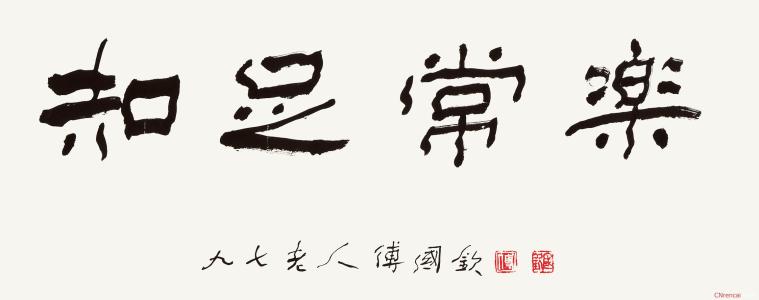 知足常樂
九七老人傅國欽
CNrencai